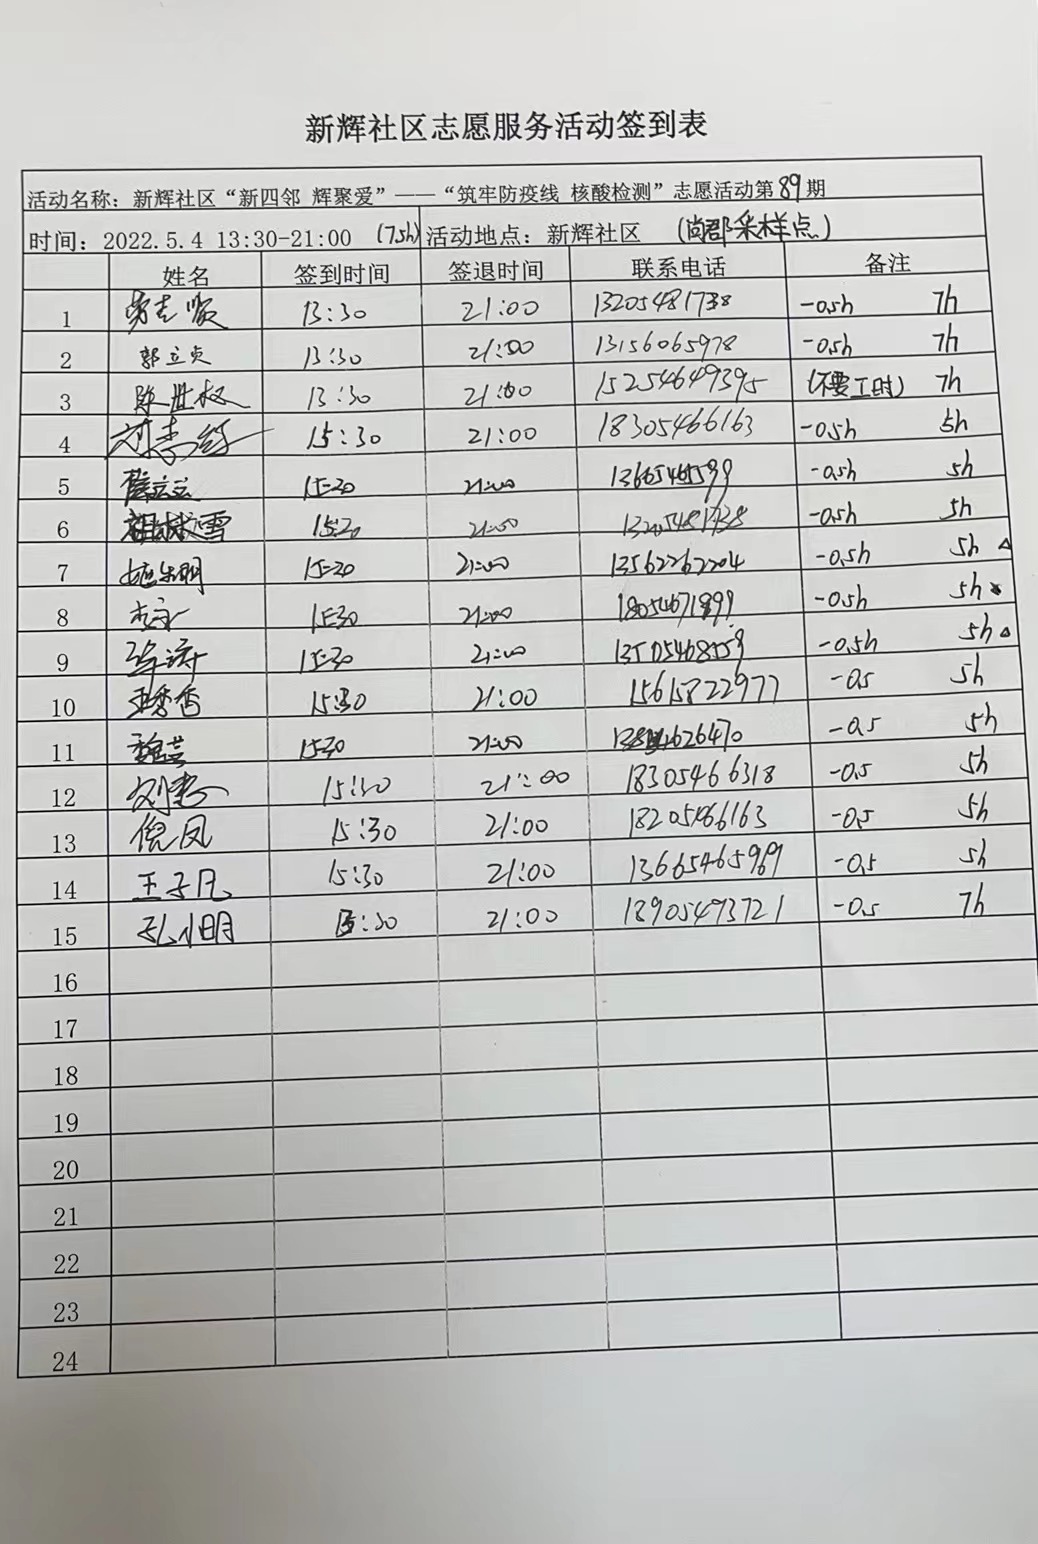 新辉社区志愿服务活动签到表
活动名称：新辉社区“新四邻 辉聚爱”——“筑牢防疫线 核酸检测”志愿活动第89期
时间：2022.5.4 13:30-21:00 (7.5h) 活动地点：新辉社区 (尚郡采样点)
姓名 签到时间 签退时间 联系电话 备注
1 13:30 21:00 13205481738 -0.5h 7h
2 郭立贞 13:30 21:00 13156065978 -0.5h 7h
3 陈世权 13:30 21:00 15254649395 (不要工时) 7h
4 15:30 21:00 18305466163 -0.5h 5h
5 15:30 21:00 -0.5h 5h
6 15:30 21:00 13205481738 -0.5h 5h
7 15:30 21:00 13562262204 -0.5h 5h △
8 15:30 21:00 18054671899 -0.5h 5h
9 15:30 21:00 13505468559 -0.5h 5h △
10 王秀香 15:30 21:00 15615822977 -0.5 5h
11 15:30 21:00 -0.5 5h
12 15:30 21:00 18305466318 -0.5 5h
13 倪凤 15:30 21:00 18205466163 -0.5 5h
14 王子凡 15:30 21:00 13665465969 -0.5 5h
15 孔小明 :30 21:00 18905473721 -0.5 7h
16
17
18
19
20
21
22
23
24